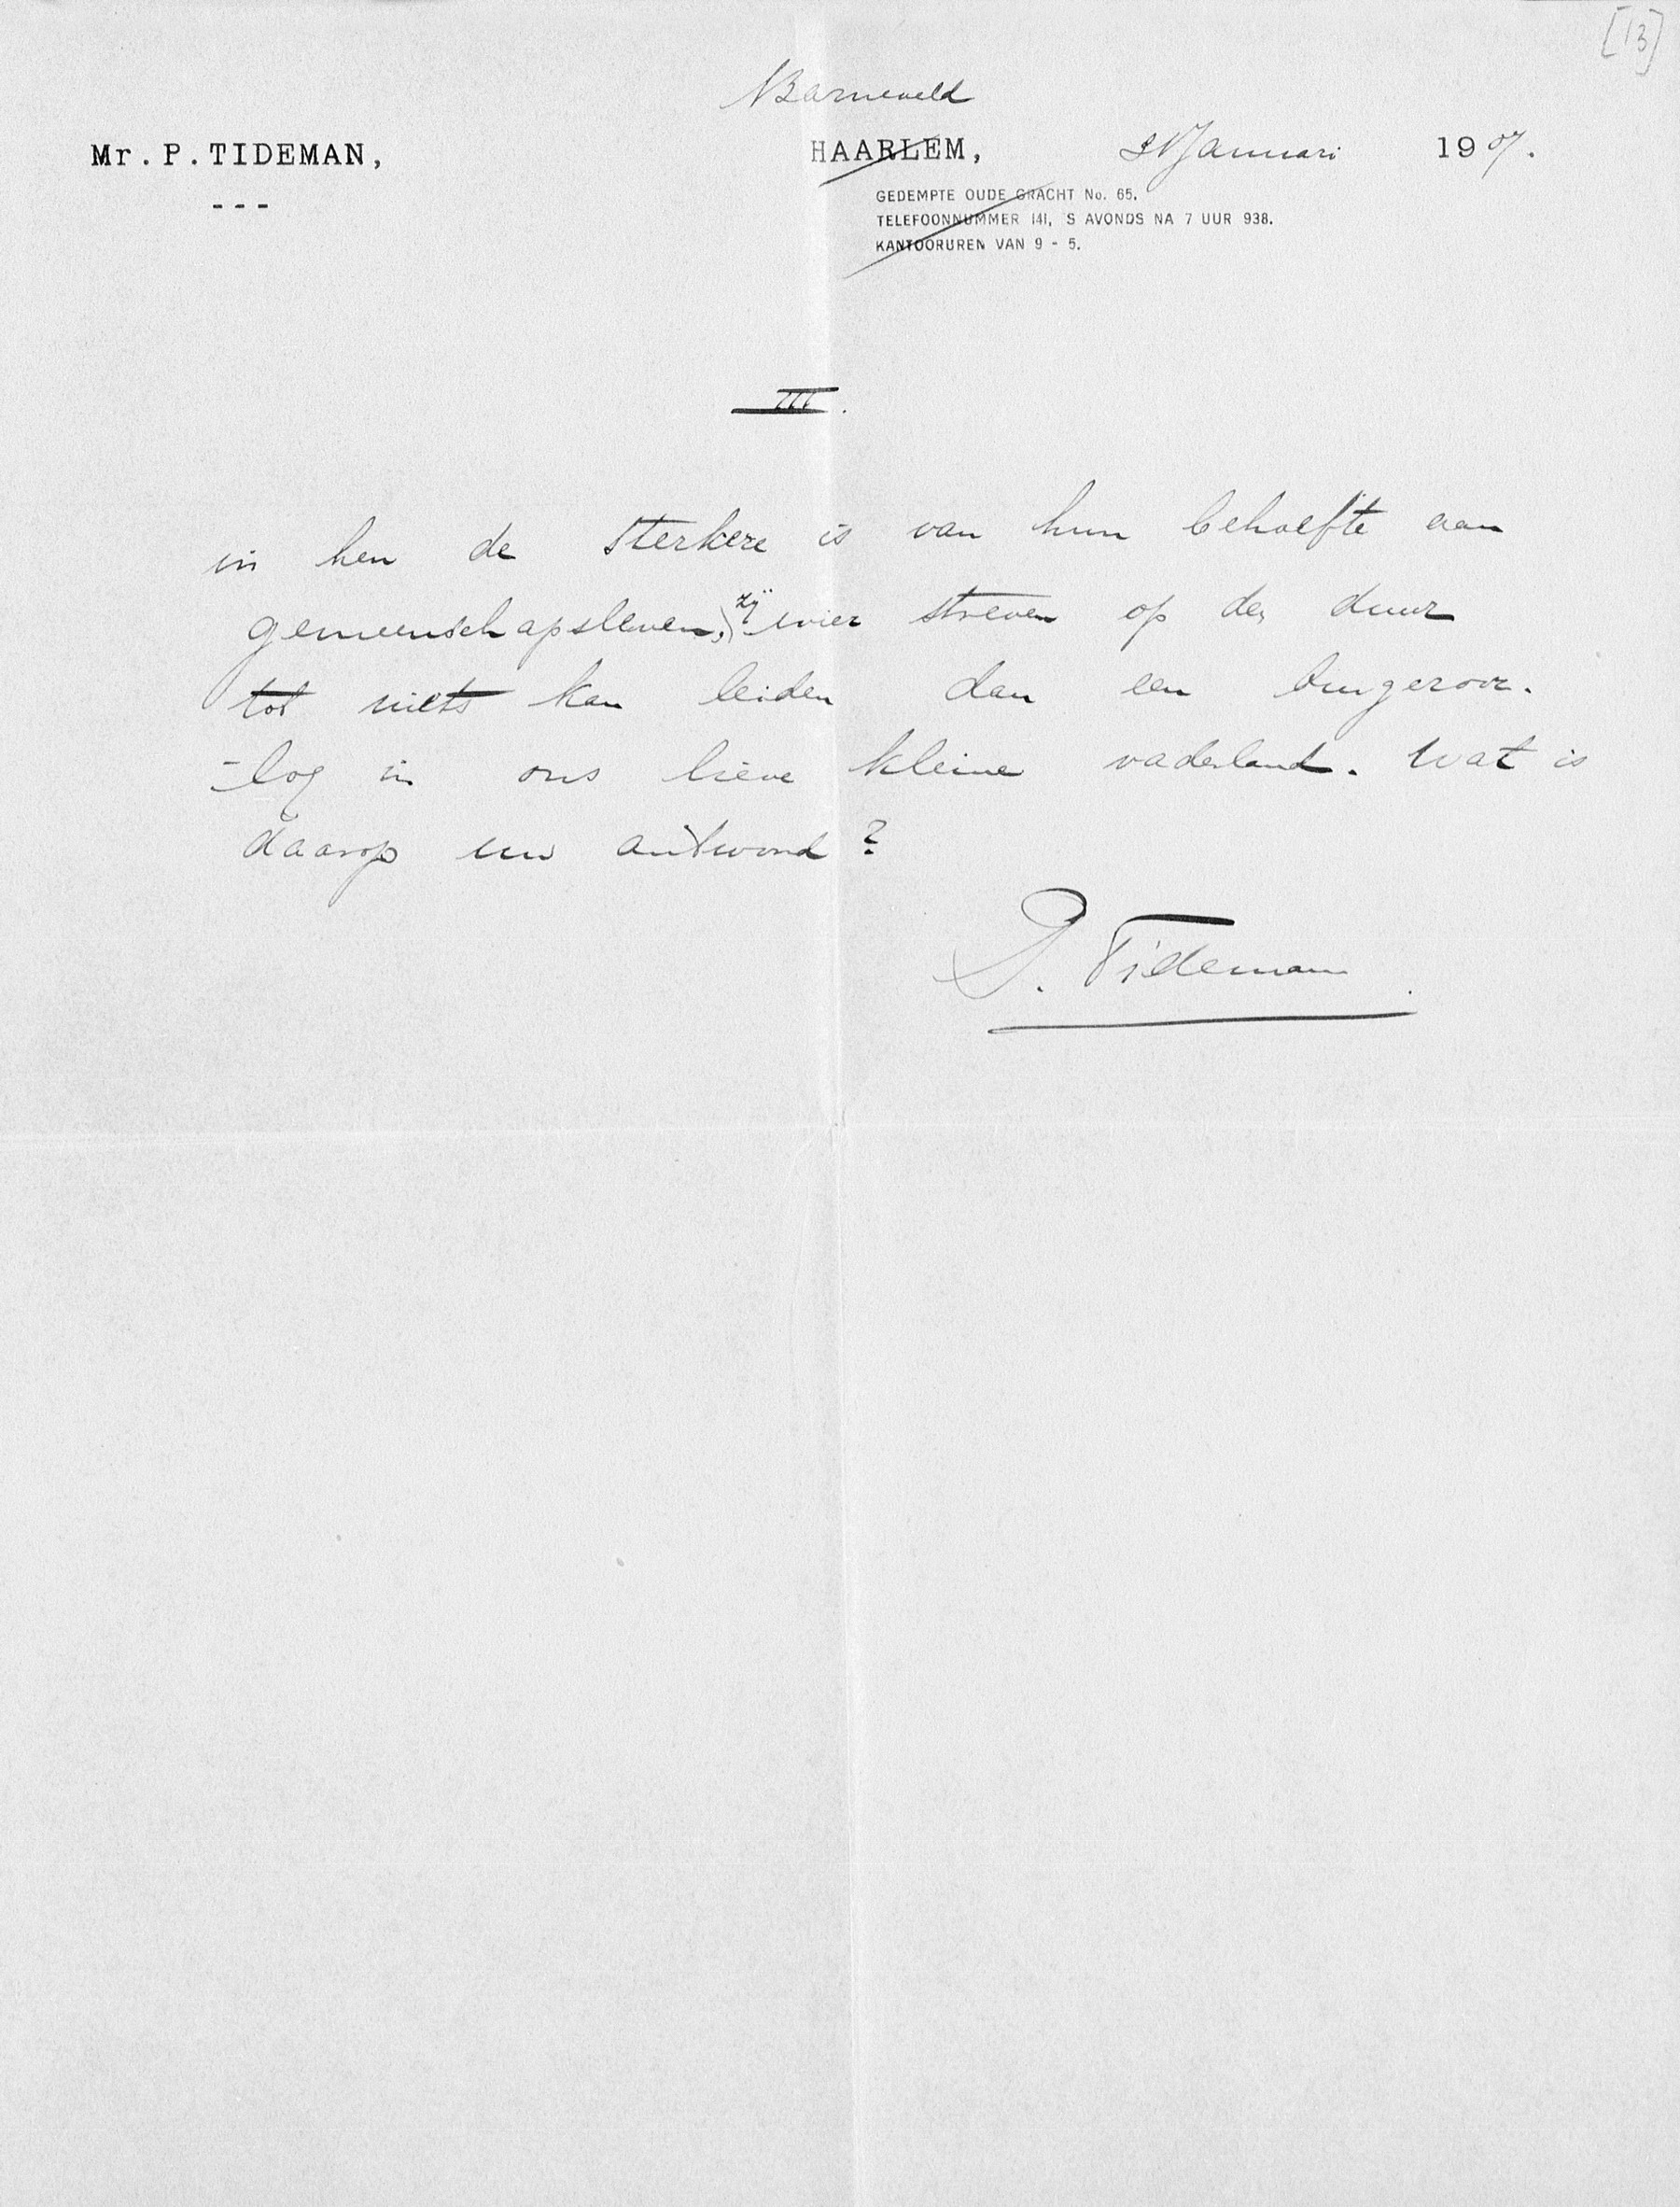 [13]
Barneveld
Mr. P. TIDEMAN, HAARLEM, Januari 1907.
---
GEDEMPTE OUDE GRACHT No. 65.
TELEFOONNUMMER 141, S AVONDS NA 7 UUR 938.
KANTOORUREN VAN 9 - 5.
III.
in hen de sterkere is van hun behoefte aan
zij
gemeenschapsleven,) wier streven op den duur
tot niets kan leiden dan een burgeroor-
-log in ons lieve kleine vaderland. Wat is
daarop uw antwoord?
P. Tideman.